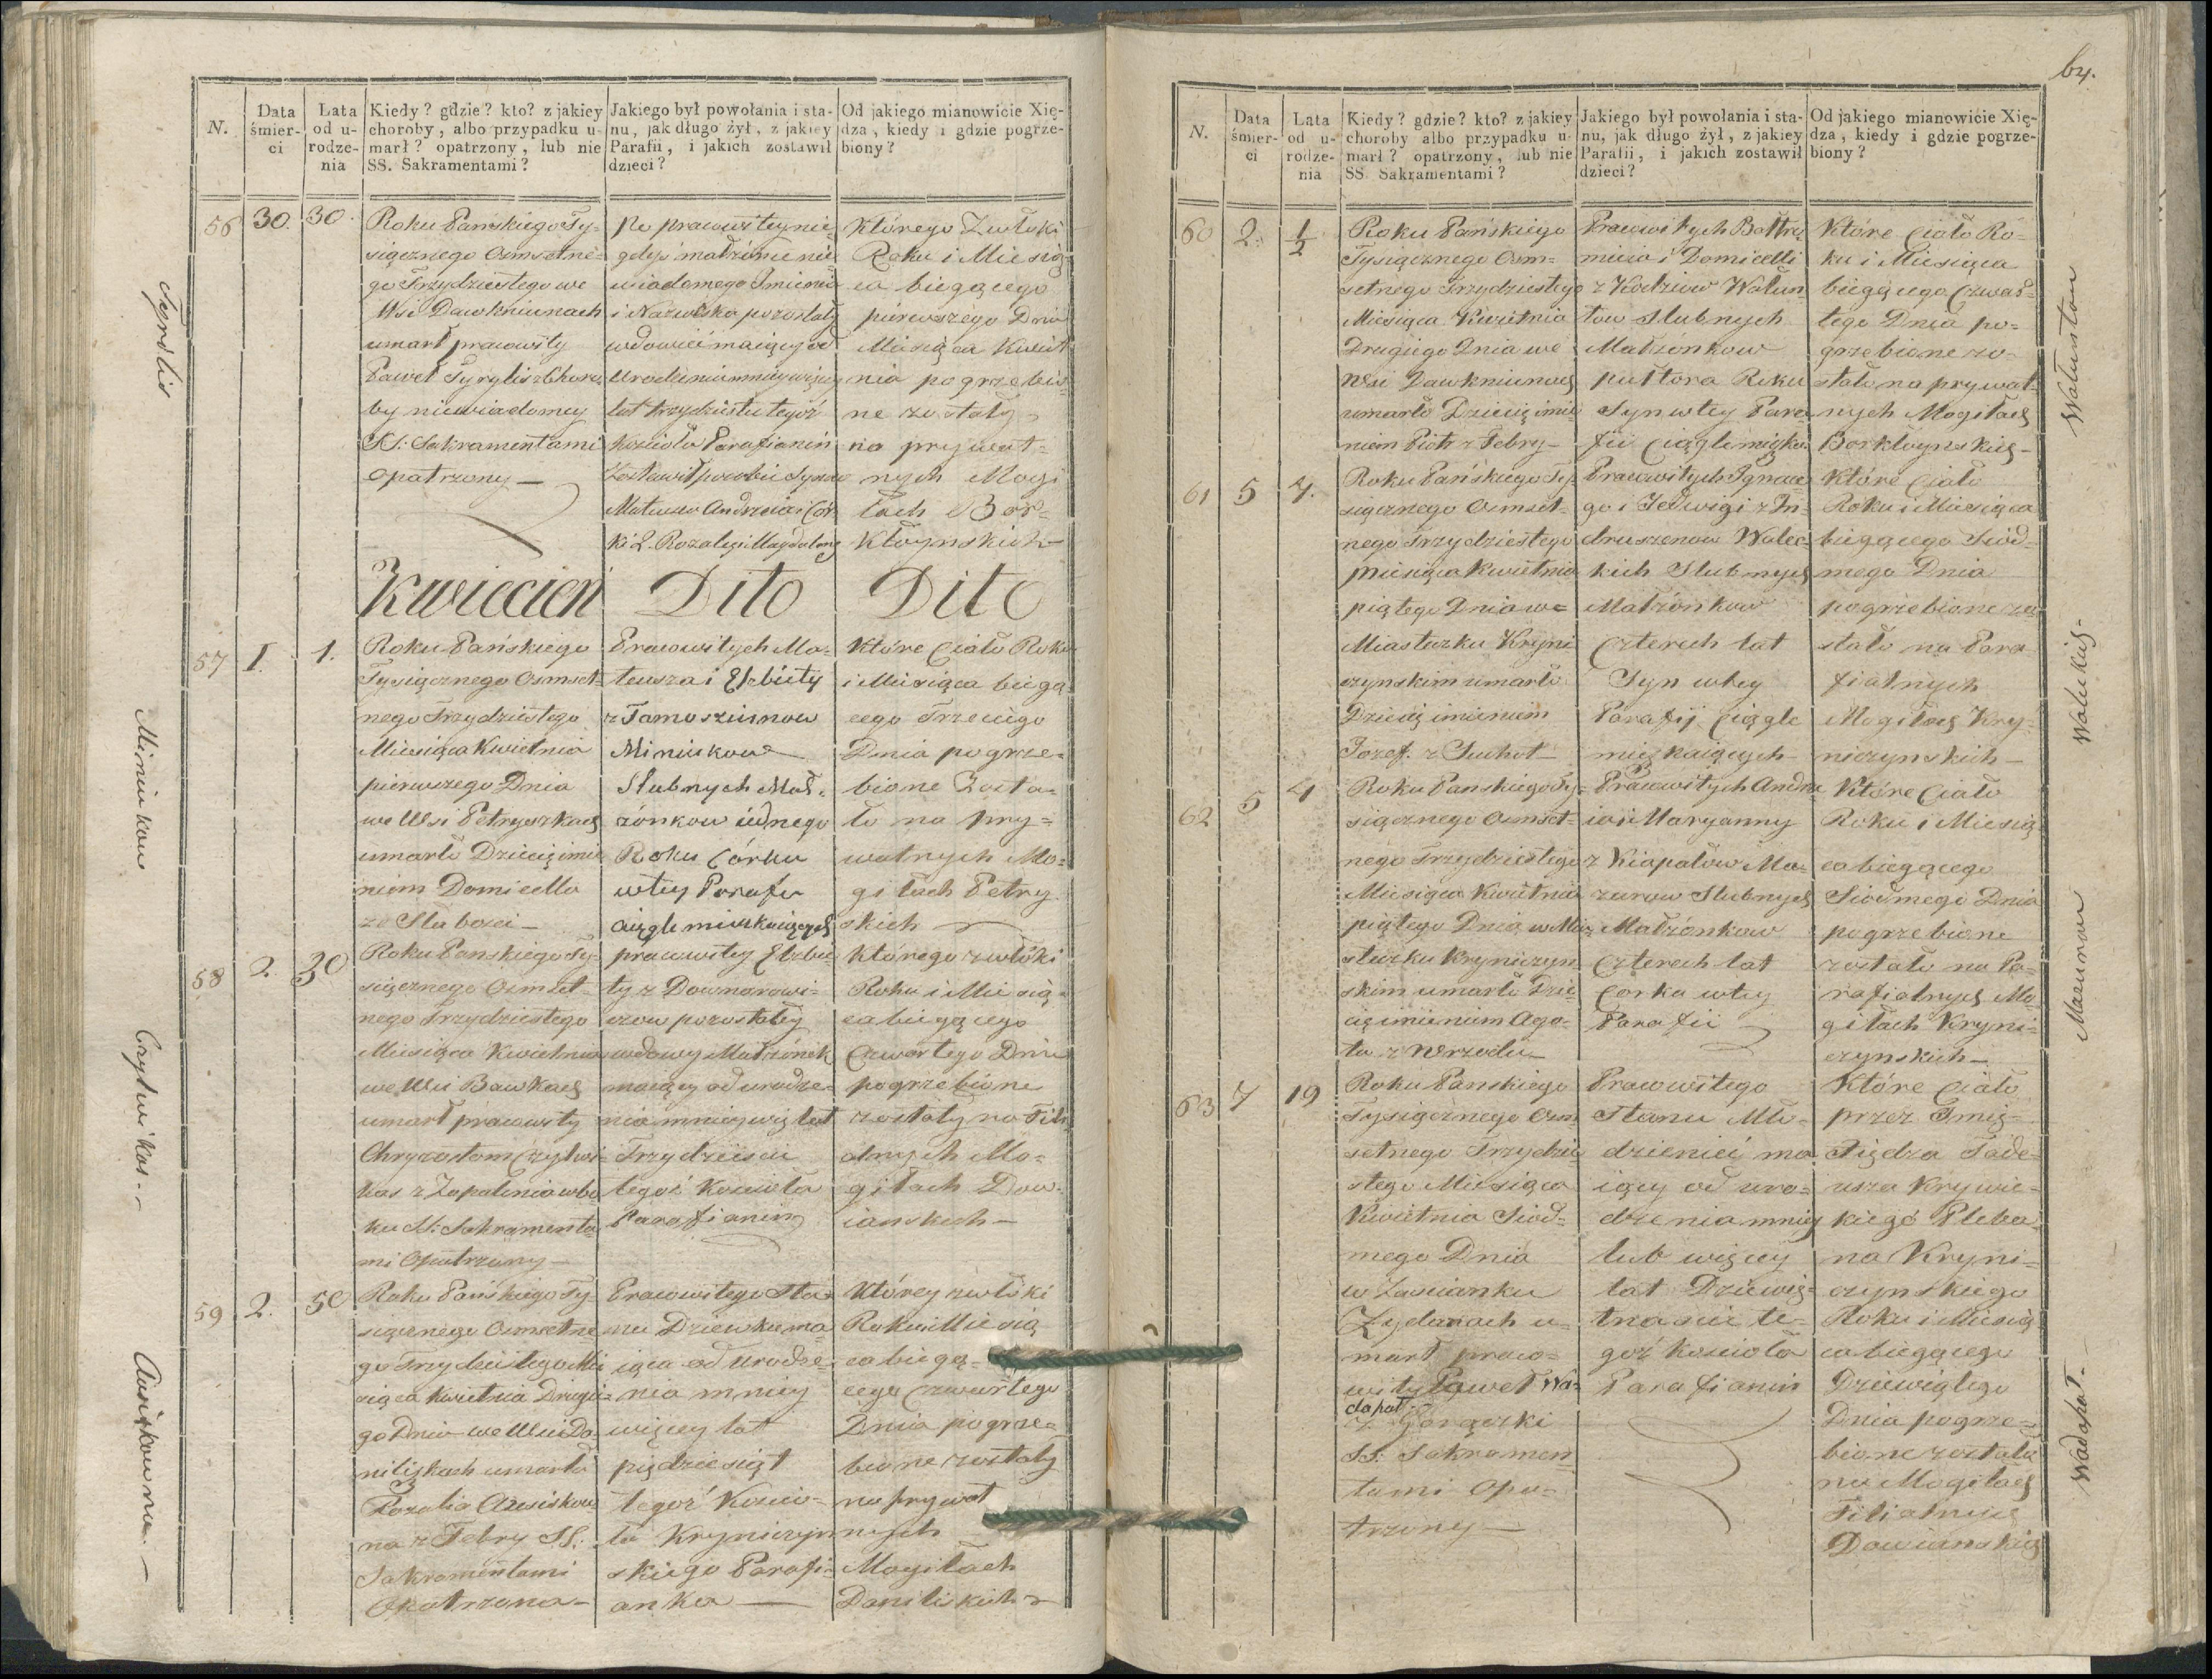 64.
N.
Data śmier-ci
Lata od u-rodze-nia
Kiedy? gdzie? kto? z jakiey
choroby, albo przypadku u-
marł? opatrzony, lub nie
SS. Sakramentami?
Jakiego był powołania i sta-
nu, jak długo żył, z jakiey
Parafii, i jakich zostawił
dzieci?
Od jakiego mianowicie Xię-
dza, kiedy i gdzie pogrze-
biony?
56
30.
30.
Roku Pańskiego Ty-
siącznego Osmsetne-
go Trzydziestego we
Wsi Dawkniunach
umarł pracowity
Paweł z Choro
by niewiadomey
SS: Sakramentami
Opatrzony —
Po pracowitey nie-
gdyś małżonie nie
wiadomego Imienia
i Nazwiska pozostały
wdowiec maiący od
Urodzenia mniey więcey
lat trzydzieści tegoż
Kościoła Parafianin
Zostawił po sobie Synow
Mateusza Andrzeia i Cor
ki 2. Rozalią i Magdalenę
Którego Zwłoki
Roku i Miesią-
ca biegącego
pierwszego Dnia
Miesiąca Kwiet
nia pogrzebio
ne zostały
na prywat-
nych Mogi
łach Bor-
kłoynskich —
Kwiecień Dito Dito
57
1.
1.
Roku Pańskiego
Tysiącznego Osmset-
nego Trzydziestego
Miesiąca Kwietnia
pierwszego Dnia
we Wsi Petryszkach
umarło Dziecię imie
niem Domicella
ze Słabosci —
Pracowitych Ma-
teusza i Elżbiety
z Tamoszunow
Miniukow
Slubnych Mał-
żonkow iednego
Roku Córka
wtey Parafii
ciągle mieszkaiących
Które Ciało Roku
i Miesiąca biegą
cego Trzeciego
Dnia pogrze-
bione Zosta-
ło na pry-
watnych Mo-
giłach Petry
skich
58
2.
30
Roku Panskiego Ty-
siącznego Osmset-
nego Trzydziestego
Miesiąca Kwietnia
we Wsi Bawkach
umarł pracowity
Chryzostom Czyłwi-
kas z Zapalenia wbo
ku SS: Sakramenta
mi Opatrzony —
pracowitey Elzbie-
ty z Downorowi-
czow pozostałey
wdowy Małżonek
maiący od urodze-
nia mniey wię lat
Trzydzieści
tegoż Kościoła
Parafianin
Którego zwłoki
Roku i Miesią-
ca biegącego
Czwartego Dnia
pogrzebione
zostały na Fili
alnych Mo-
giłach Dow-
ianskich —
59
2.
50
Roku Pańskiego Ty-
siącznego Osmsetne
go Trzydziestego Mie
siąca Kwietnia Drugie-
go Dnia we Wsi Da-
niliszkach umarła
Rozalia
na z Febry SS:
Sakramentami
Opatrzona —
Pracowitego Sta-
nu Dziewka ma-
iąca od Urodze-
nia mniey
więcey lat
pięдziesiąt
tegoż Kościo-
ła Kryniczyn
skiego Parafi-
anka —
Którey zwłoki
Roku i Miesią
ca biegą-
cego Czwartego
Dnia pogrze-
bione zostały
na prywat
nych
Mogiłach
Daniliskich
Miniukow
Czyłwikas. —
N.
Data śmier-ci
Lata od u-rodze-nia
Kiedy? gdzie? kto? z jakiey
choroby albo przypadku u-
marł? opatrzony, lub nie
SS. Sakramentami?
Jakiego był powołania i sta-
nu, jak długo żył, z jakiey
Parafii, i jakich zostawił
dzieci?
Od jakiego mianowicie Xię-
dza, kiedy i gdzie pogrze-
biony?
60
2.
1/2
Roku Pańskiego
Tysiącznego Osm-
setnego Trzydziestego
Miesiąca Kwietnia
Drugiego Dnia we
Wsi Dawkniunach
umarło Dziecię imie
niem Piotr z Febry —
Pracowitych Bałtro
mieia i Domicelli
z Walun
tow Slubnych
Małżonkow
pułtora Roku
Syn wtey Para
fii Ciągle mieszka
Które Ciało Ro-
ku i Miesiąca
biegącego Czwar-
tego Dnia po-
grzebione zo-
stało na prywat-
nych Mogiłach
Borkłoynskich —
61
5
4.
Roku Pańskiego Ty-
siącznego Osmset-
nego Trzydziestego
Miesiąca Kwietnia
piątego Dnia we
Miasteczku Kryni
czynskim umarło
Dziecię imieniem
Jozef z Suchot —
Pracowitych Ignace
go i Jedwigi z In-
druszenow Walec-
kich Slubnych
Małżonkow
Czterech lat
Syn wtey
Parafij Ciągle
mieszkaiących —
Które Ciało
Roku i Miesiąca
biegącego Siod-
mego Dnia
pogrzebione zo
stało na Para
fialnych
Mogiłach Kry-
niczynskich —
62
5
4
Roku Panskiego Ty-
siącznego Osmset-
nego Trzydziestego
Miesiąca Kwietnia
piątego Dnia w Mia-
steczku Kryniczyn
skim umarło Dzie-
cię imieniem Aga-
ta z Wrzodu —
Pracowitych Andrze
ia i Maryanny
z Kiapałow Ma-
zurow Slubnych
Małżonkow
Czterech lat
Corka wtey
Parafii
Które Ciało
Roku i Miesią
ca biegącego
Siodmego Dnia
pogrzebione
zostało na Pa-
rafialnych Mo
giłach Kryni-
czynskich —
63
7
19
Roku Panskiego
Tysiącznego Osm
setnego Trzydzie
stego Miesiąca
Kwietnia Siod-
mego Dnia
w Zascianku
Zydanach u-
marł praco-
wity Paweł Wa-
dapał
z Gorączki
SS: Sakramen
tami Opa-
trzony —
Pracowitego
Stanu Mło-
dzieniec ma
iący od uro-
dzenia mniey
lub więcey
lat Dziewię-
tnascie te-
goż Kościoła
Parafianin
Które Ciało
przez Imię
Xiędza Tade-
usza Krywic-
kiego Pleba-
na Kryni-
czynskiego
Roku i Miesią
ca biegącego
Dziewiątego
Dnia pogrze-
bione zostało
na Mogiłach
Filialnych
Dowianskich
Waluntow
Waleckich —
Mazurow
Wadapał. —